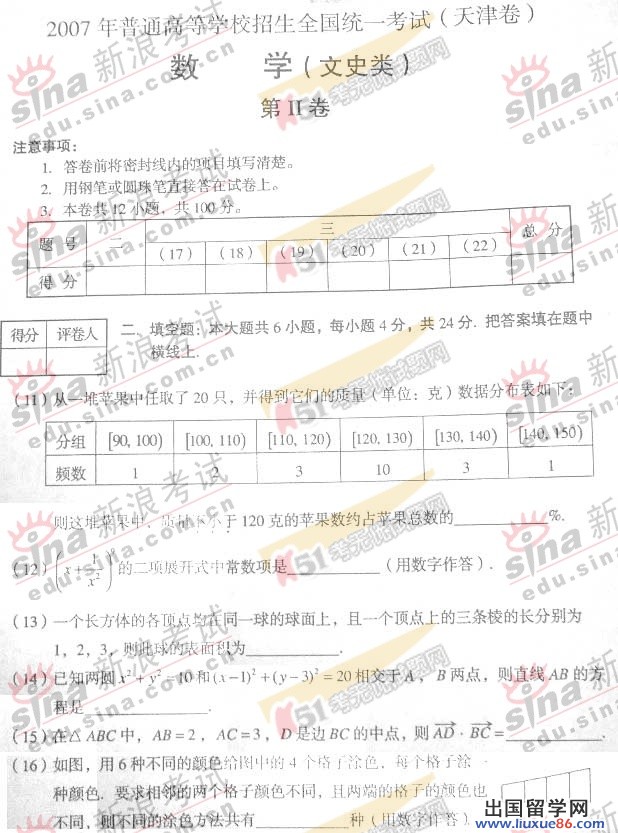 2007 年普通高等学校招生全国统一考试（天津卷）
数 学（文史类）
第 II 卷
注意事项：
1. 答卷前将密封线内的项目填写清楚。
2. 用钢笔或圆珠笔直接答在试卷上。
3. 本卷共 12 小题，共 100 分。
题 号 二 三 总 分
（17） （18） （19） （20） （21） （22）
得 分
得分 评卷人
二. 填空题：本大题共 6 小题，每小题 4 分，共 24 分. 把答案填在题中
横线上.
（11）从一堆苹果中任取了 20 只，并得到它们的质量（单位：克）数据分布表如下：
分组 [90, 100) [100, 110) [110, 120) [120, 130) [130, 140) [140, 150)
频数 1 2 3 10 3 1
则这堆苹果中，质量不小于 120 克的苹果数约占苹果总数的____________%.
（12）(x + 1/x²)⁹ 的二项展开式中常数项是____________（用数字作答）.
（13）一个长方体的各顶点均在同一球的球面上，且一个顶点上的三条棱的长分别为
1，2，3，则此球的表面积为____________.
（14）已知两圆 x² + y² = 10 和 (x−1)² + (y−3)² = 20 相交于 A，B 两点，则直线 AB 的方
程是____________.
（15）在△ ABC 中，AB = 2，AC = 3，D 是边 BC 的中点，则 AD · BC = ____________.
（16）如图，用 6 种不同的颜色给图中的 4 个格子涂色，每个格子涂一
种颜色. 要求相邻的两个格子颜色不同，且两端的格子的颜色也
不同，则不同的涂色方法共有____________种（用数字作答）.
新浪考试
sina
edu.sina.com.cn
K51考元试题网
出国留学网
www.liuxue86.com